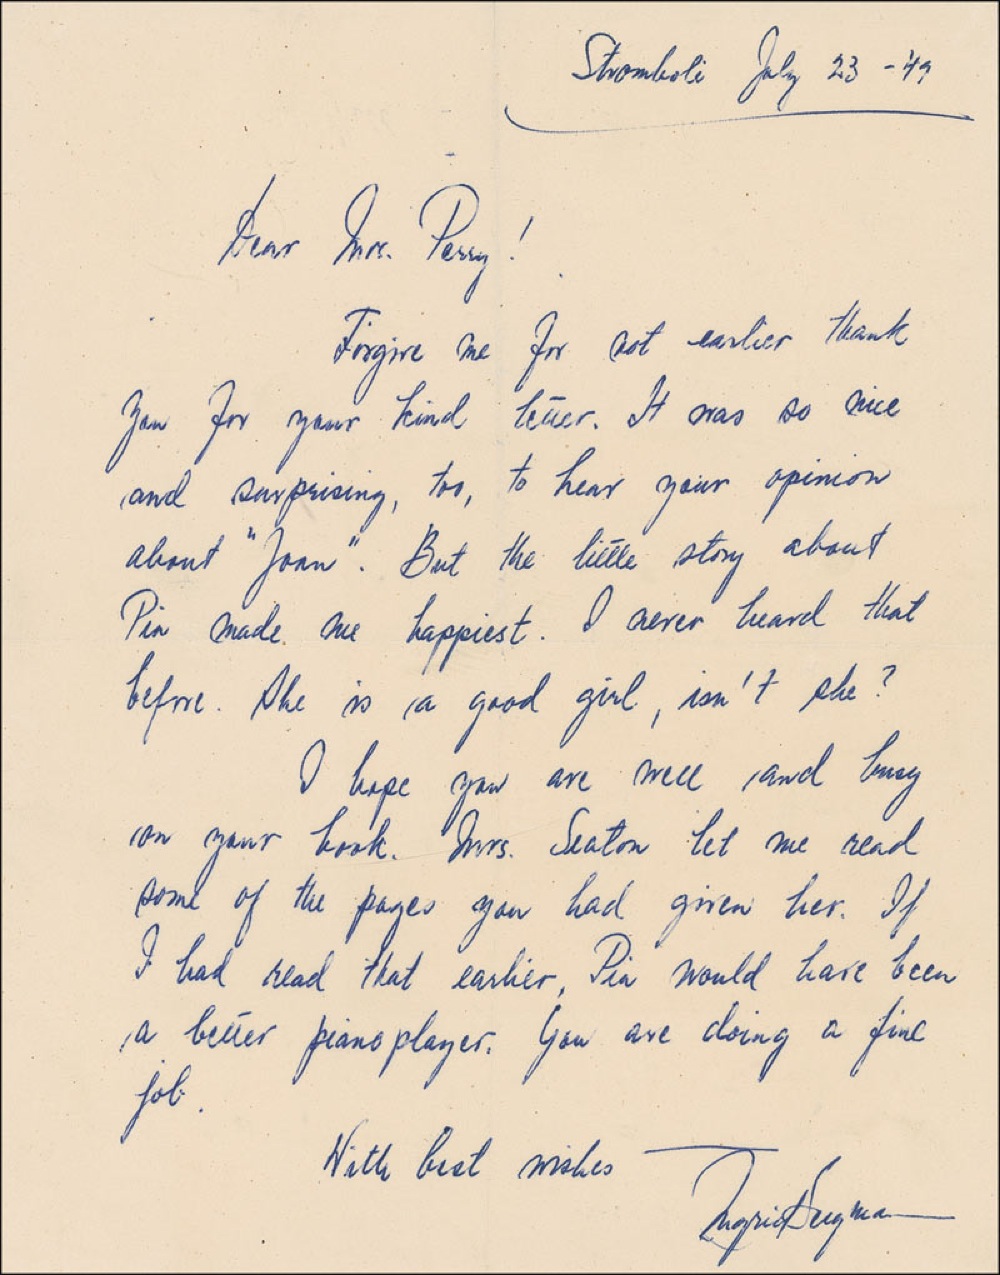 Stromboli July 23 - '49
Dear Mrs. Perry!
Forgive me for not earlier thank
you for your kind letter. It was so nice
and surprising, too, to hear your opinion
about "Joan". But the little story about
Pia made me happiest. I never heard that
before. She is a good girl, isn't she?
I hope you are well and busy
on your book. Mrs. Seaton let me read
some of the pages you had given her. If
I had read that earlier, Pia would have been
a better pianoplayer. You are doing a fine
job.
With best wishes
Ingrid Bergman